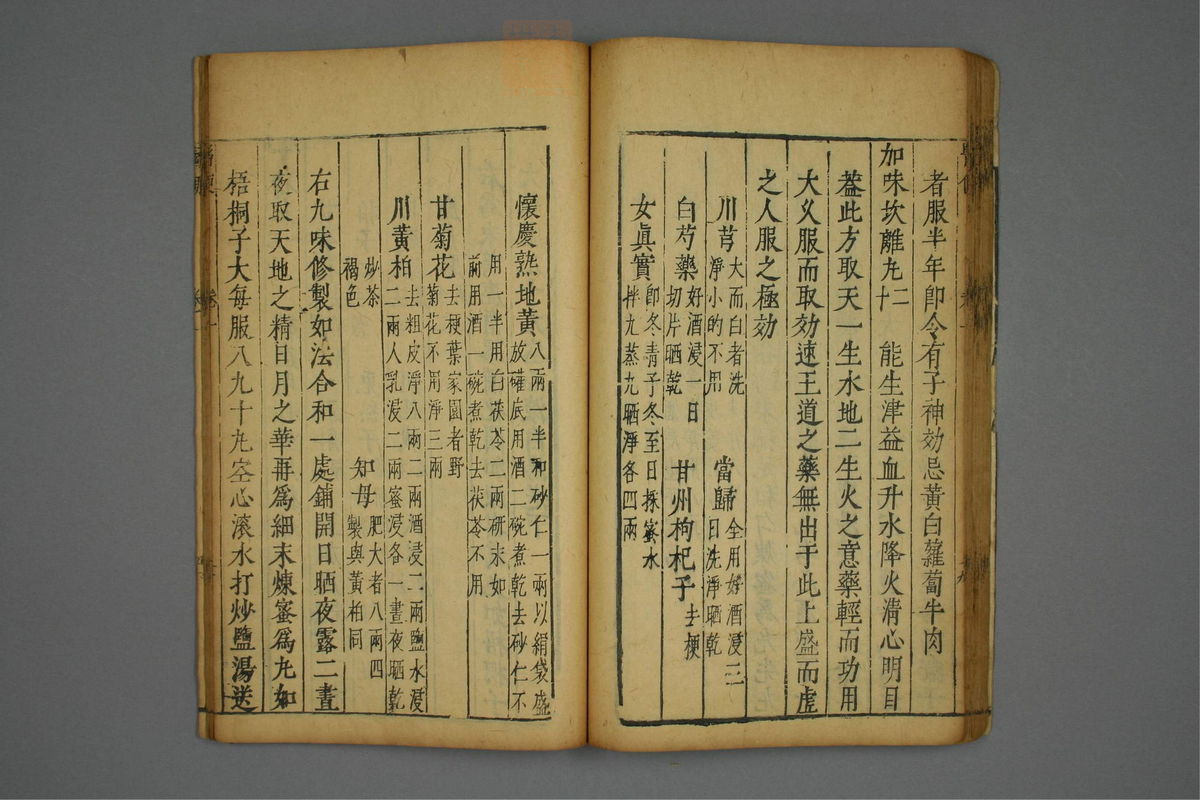 者服半年卽令有子神効忌黃白蘿蔔牛肉
加味坎離丸二十 能生津益血升水降火清心明目
蓋此方取天一生水地二生火之意藥輕而功用
大久服而取効速王道之藥無出于此上盛而虛
之人服之極効
川芎大而白者洗淨小的不用 當歸全用好酒浸三日洗淨晒乾
白芍藥好酒浸一日切片晒乾 甘州枸杞子去梗
女眞實卽冬青子冬至日採蜜水拌九蒸九晒淨各四兩
懷慶熟地黃八兩一半和砂仁一兩以絹袋盛放礶底用酒二碗煮乾去砂仁不
用一半用白茯苓二兩研末如前用酒一碗煮乾去茯苓不用
甘菊花去梗葉家園者野菊花不用淨三兩
川黃柏去粗皮淨八兩二兩酒浸二兩鹽水浸二兩人乳浸二兩蜜浸各一晝夜晒乾
炒茶褐色 知母肥大者八兩四製與黃柏同
右九味修製如法合和一處鋪開日晒夜露二晝
夜取天地之精日月之華再爲細末煉蜜爲丸如
梧桐子大每服八九十丸空心滚水打炒鹽湯送